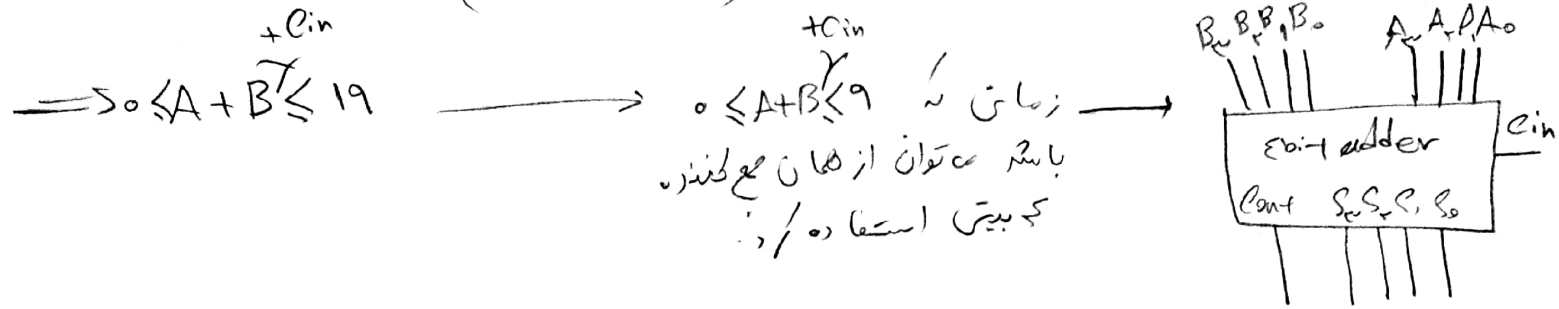 => ০ ≤ A + B + Cin ≤ 19
زمانی که ০ ≤ A+B + Cin ≤ 9
باشد می توان از همان جمع کننده
۴ بیتی استفاده کرد.
B۳ B۲ B۱ B۰ A۳ A۲ A۱ A۰
۴bit adder Cin
Cout S۳ S۲ S۱ S۰